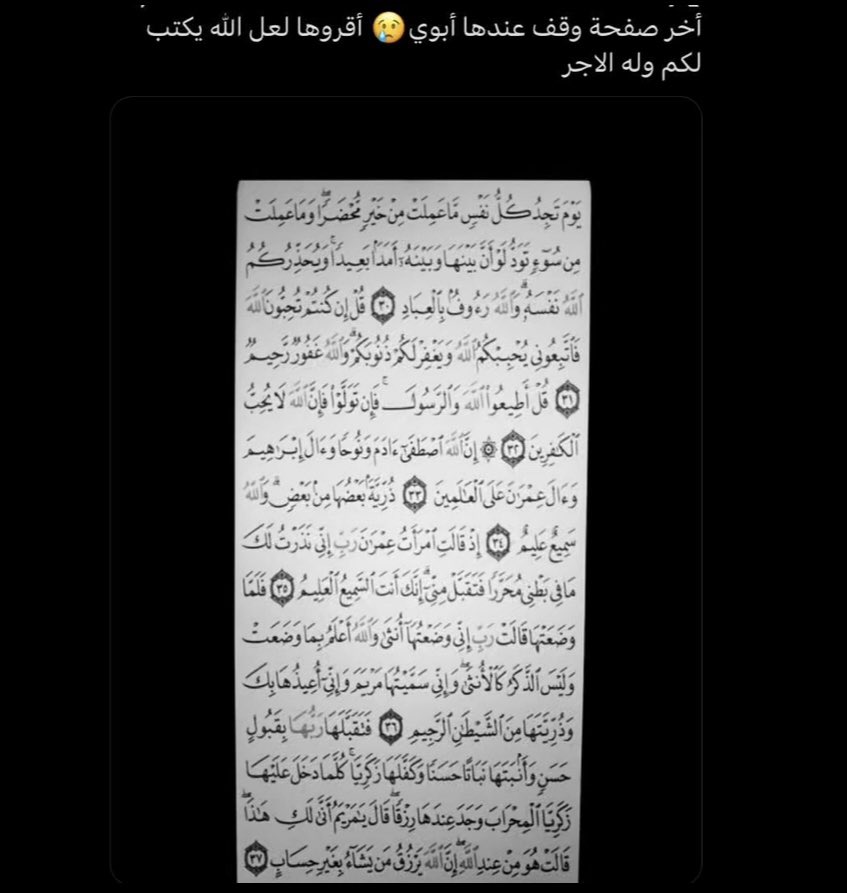 أخر صفحة وقف عندها أبوي😢 أقروها لعل الله يكتب
لكم وله الاجر
يَوْمَ تَجِدُ كُلُّ نَفْسٍ مَّا عَمِلَتْ مِنْ خَيْرٍ مُّحْضَرًا وَمَا عَمِلَتْ
مِن سُوٓءٍ تَوَدُّ لَوْ أَنَّ بَيْنَهَا وَبَيْنَهُۥٓ أَمَدًۢا بَعِيدًا ۗ وَيُحَذِّرُكُمُ
ٱللَّهُ نَفْسَهُۥ ۗ وَٱللَّهُ رَءُوفٌۢ بِٱلْعِبَادِ ٣٠ قُلْ إِن كُنتُمْ تُحِبُّونَ ٱللَّهَ
فَٱتَّبِعُونِى يُحْبِبْكُمُ ٱللَّهُ وَيَغْفِرْ لَكُمْ ذُنُوبَكُمْ ۗ وَٱللَّهُ غَفُورٌ رَّحِيمٌ
٣١ قُلْ أَطِيعُوا۟ ٱللَّهَ وَٱلرَّسُولَ ۖ فَإِن تَوَلَّوْا۟ فَإِنَّ ٱللَّهَ لَا يُحِبُّ
ٱلْكَـٰفِرِينَ ٣٢ ۞ إِنَّ ٱللَّهَ ٱصْطَفَىٰٓ ءَادَمَ وَنُوحًا وَءَالَ إِبْرَٰهِيمَ
وَءَالَ عِمْرَٰنَ عَلَى ٱلْعَـٰلَمِينَ ٣٣ ذُرِّيَّةًۢ بَعْضُهَا مِنۢ بَعْضٍ ۗ وَٱللَّهُ
سَمِيعٌ عَلِيمٌ ٣٤ إِذْ قَالَتِ ٱمْرَأَتُ عِمْرَٰنَ رَبِّ إِنِّى نَذَرْتُ لَكَ
مَا فِى بَطْنِى مُحَرَّرًا فَتَقَبَّلْ مِنِّىٓ ۖ إِنَّكَ أَنتَ ٱلسَّمِيعُ ٱلْعَلِيمُ ٣٥ فَلَمَّا
وَضَعَتْهَا قَالَتْ رَبِّ إِنِّى وَضَعْتُهَآ أُنثَىٰ وَٱللَّهُ أَعْلَمُ بِمَا وَضَعَتْ
وَلَيْسَ ٱلذَّكَرُ كَٱلْأُنثَىٰ ۖ وَإِنِّى سَمَّيْتُهَا مَرْيَمَ وَإِنِّىٓ أُعِيذُهَا بِكَ
وَذُرِّيَّتَهَا مِنَ ٱلشَّيْطَـٰنِ ٱلرَّجِيمِ ٣٦ فَتَقَبَّلَهَا رَبُّهَا بِقَبُولٍ
حَسَنٍ وَأَنۢبَتَهَا نَبَاتًا حَسَنًا وَكَفَّلَهَا زَكَرِيَّا ۖ كُلَّمَا دَخَلَ عَلَيْهَا
زَكَرِيَّا ٱلْمِحْرَابَ وَجَدَ عِندَهَا رِزْقًا ۖ قَالَ يَـٰمَرْيَمُ أَنَّىٰ لَكِ هَـٰذَا ۖ
قَالَتْ هُوَ مِنْ عِندِ ٱللَّهِ ۖ إِنَّ ٱللَّهَ يَرْزُقُ مَن يَشَآءُ بِغَيْرِ حِسَابٍ ٣٧